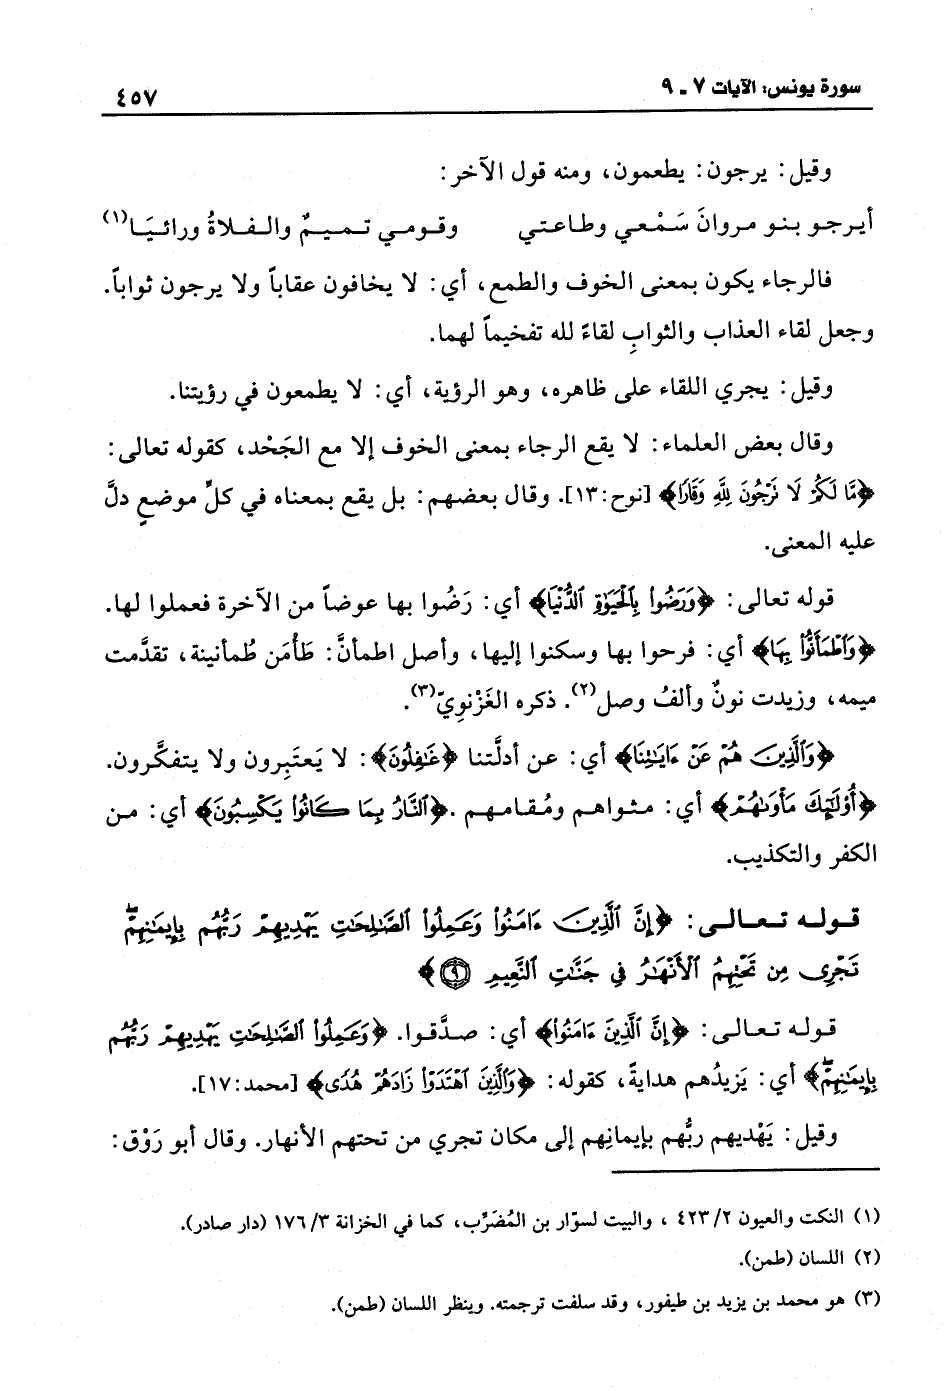 سورة يونس: الآيات ٧ ـ ٩
٤٥٧
وقيل: يرجون: يطعمون، ومنه قول الآخر:
أيرجو بنو مروانَ سَمْعي وطاعتي وقومي تميمٌ والفلاةُ ورائيَا(١)
فالرجاء يكون بمعنى الخوف والطمع، أي: لا يخافون عقاباً ولا يرجون ثواباً.
وجعل لقاء العذاب والثوابِ لقاءً لله تفخيماً لهما.
وقيل: يجري اللقاء على ظاهره، وهو الرؤية، أي: لا يطمعون في رؤيتنا.
وقال بعض العلماء: لا يقع الرجاء بمعنى الخوف إلا مع الجَحْد، كقوله تعالى:
﴿مَّا لَكُمْ لَا نَرْجُونَ لِلَّهِ وَقَارًا﴾ [نوح:١٣]. وقال بعضهم: بل يقع بمعناه في كلِّ موضعٍ دلَّ
عليه المعنى.
قوله تعالى: ﴿وَرَضُوا۟ بِٱلْحَيَوٰةِ ٱلدُّنْيَا﴾ أي: رَضُوا بها عوضاً من الآخرة فعملوا لها.
﴿وَٱطْمَأَنُّوا۟ بِهَا﴾ أي: فرحوا بها وسكنوا إليها، وأصل اطمأنَّ: طَأْمَن طُمأنينة، تقدَّمت
ميمه، وزيدت نونٌ وألفُ وصل(٢). ذكره الغَزْنوِيّ(٣).
﴿وَٱلَّذِينَ هُمْ عَنْ ءَايَٰتِنَا﴾ أي: عن أدلَّتنا ﴿غَٰفِلُونَ﴾: لا يَعتَبِرون ولا يتفكَّرون.
﴿أُو۟لَٰٓئِكَ مَأْوَىٰهُمُ﴾ أي: مثواهم ومُقامهم .﴿ٱلنَّارُ بِمَا كَانُوا۟ يَكْسِبُونَ﴾ أي: من
الكفر والتكذيب.
قوله تعالى: ﴿إِنَّ ٱلَّذِينَ ءَامَنُوا۟ وَعَمِلُوا۟ ٱلصَّٰلِحَٰتِ يَهْدِيهِمْ رَبُّهُم بِإِيمَٰنِهِمْۖ
تَجْرِى مِن تَحْتِهِمُ ٱلْأَنْهَٰرُ فِى جَنَّٰتِ ٱلنَّعِيمِ ٩﴾
قوله تعالى: ﴿إِنَّ ٱلَّذِينَ ءَامَنُوا۟﴾ أي: صدَّقوا. ﴿وَعَمِلُوا۟ ٱلصَّٰلِحَٰتِ يَهْدِيهِمْ رَبُّهُم
بِإِيمَٰنِهِمْۖ﴾ أي: يَزيدُهم هدايةً، كقوله: ﴿وَٱلَّذِينَ ٱهْتَدَوْا۟ زَادَهُمْ هُدًى﴾ [محمد:١٧].
وقيل: يَهْديهم ربُّهم بإيمانِهم إلى مكان تجري من تحتهم الأنهار. وقال أبو رَوْق:
(١) النكت والعيون ٢/ ٤٢٣ ، والبيت لسوّار بن المُضَرِّب، كما في الخزانة ٣/ ١٧٦ (دار صادر).
(٢) اللسان (طمن).
(٣) هو محمد بن يزيد بن طيفور، وقد سلفت ترجمته. وينظر اللسان (طمن).